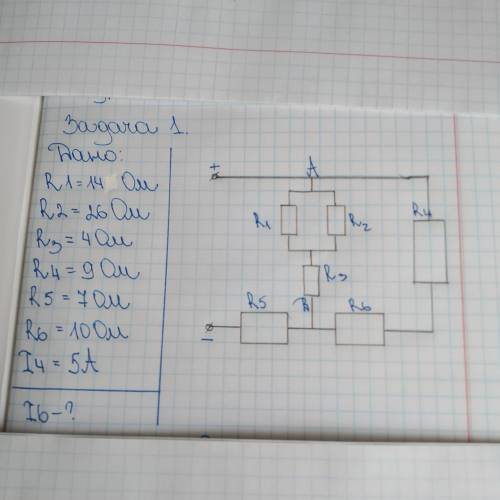 Задача 1.
Дано:
R1 = 14 Ом
R2 = 26 Ом
R3 = 4 Ом
R4 = 9 Ом
R5 = 7 Ом
R6 = 10 Ом
I4 = 5А
I6 - ?
+ A
R1 R2 R4
R3
B
R5 R6
-